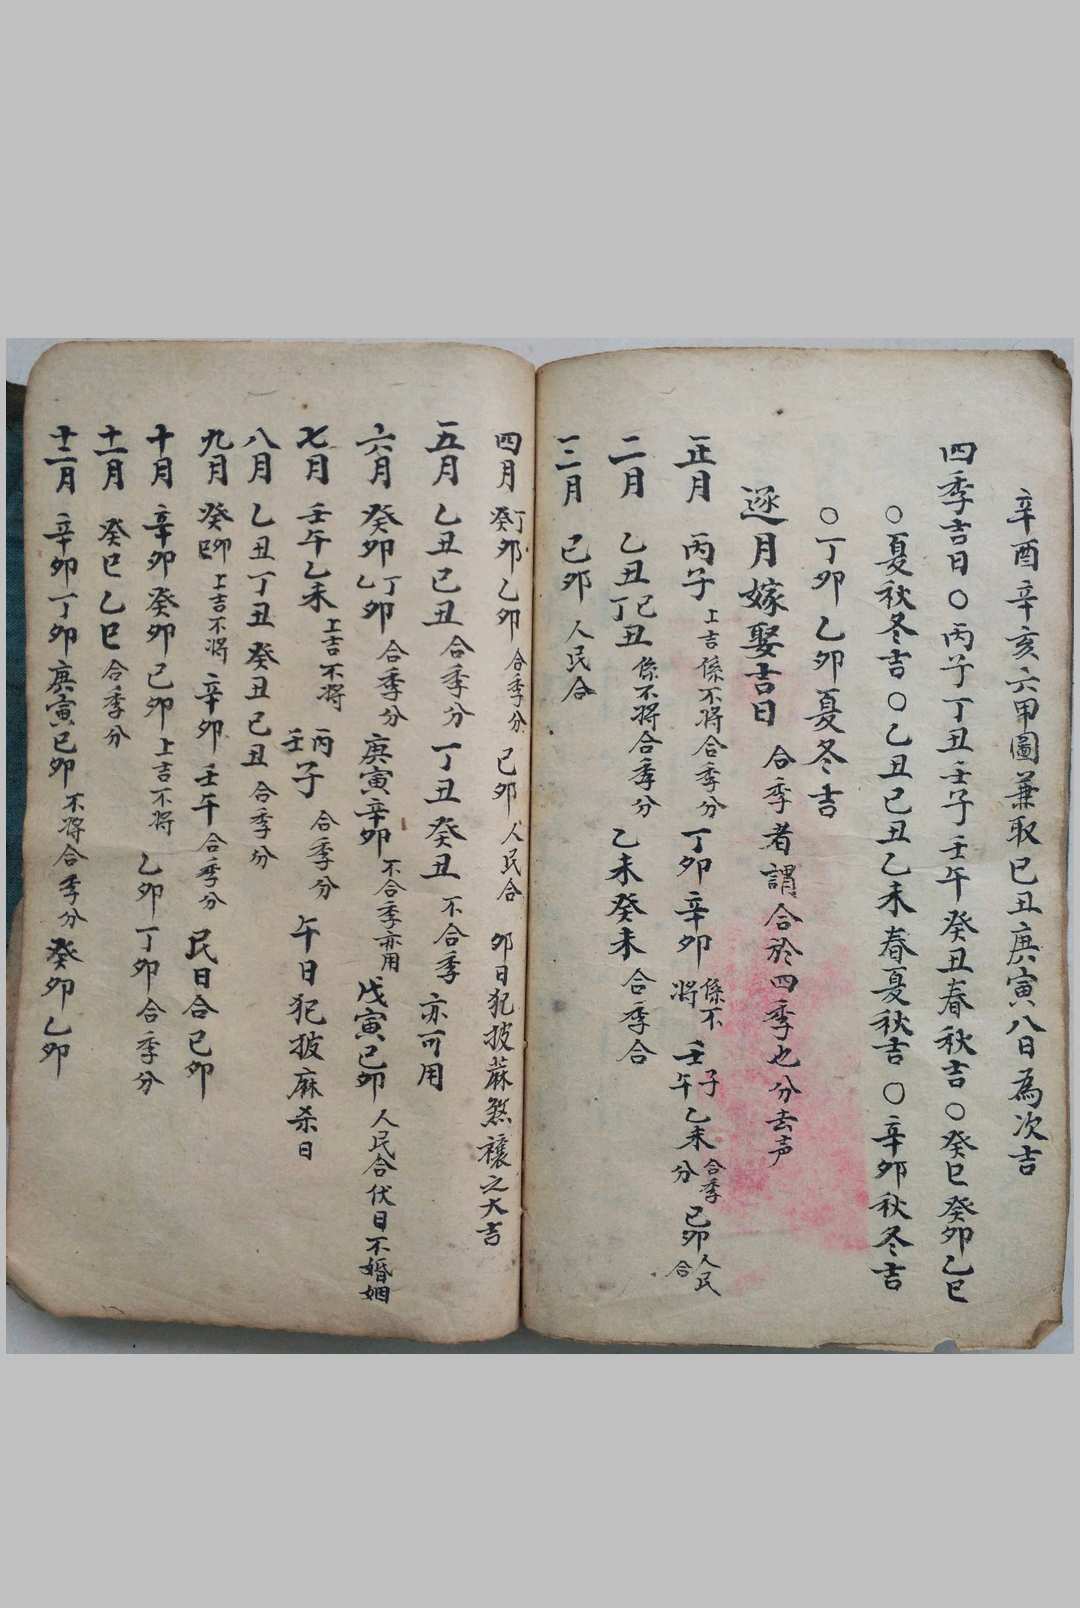 辛酉辛亥六甲圖兼取已丑庚寅八日為次吉
四季吉日〇丙子丁丑壬子壬午癸丑春秋吉〇癸巳癸卯乙巳
〇夏秋冬吉〇乙丑已丑乙未春夏秋吉〇辛卯秋冬吉
〇丁卯乙卯夏冬吉
逐月嫁娶吉日 合季者謂合於四季也分去声
正月 丙子上吉係不將合季分丁卯辛卯係不將壬子午乙未合季分已卯人民合
二月 乙丑已丁丑係不將合季分乙未癸未合季合
三月 已卯人民合
四月 丁癸卯乙卯合季分已卯人民合卯日犯披蔴煞禳之大吉
五月 乙丑已丑合季分丁丑癸丑不合季亦可用
六月 癸卯丁乙卯合季分庚寅辛卯不合季亦用戊寅已卯人民合伏日不婚姻
七月 壬午乙未上吉不將丙壬子合季分午日犯披麻杀日
八月 乙丑丁丑癸丑已丑合季分
九月 癸卯巳上吉不將辛卯壬午合季分民日合已卯
十月 辛卯癸卯已卯上吉不將乙卯丁卯合季分
十一月 癸巳乙巳合季分
十二月 辛卯丁卯庚寅已卯不將合季分癸卯乙卯